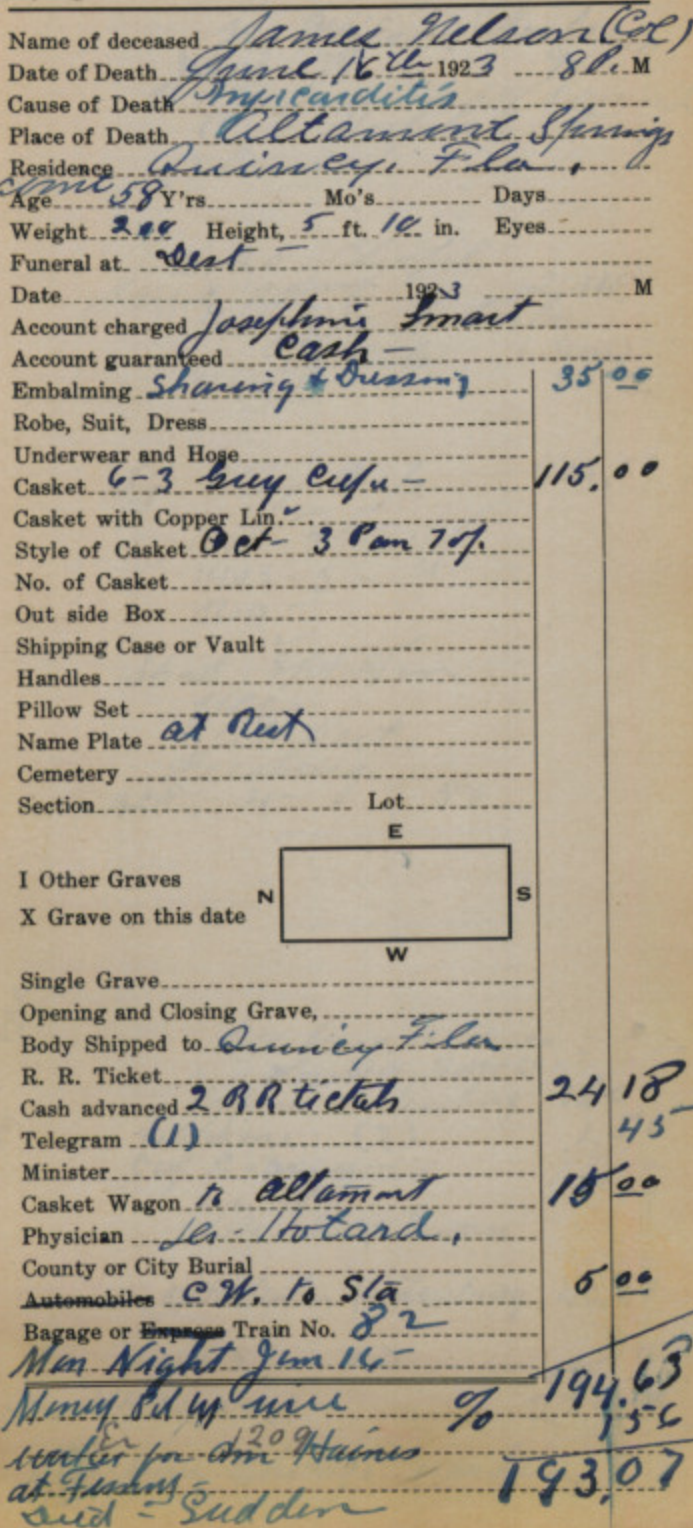 Name of deceased James Nelson (Col)
Date of Death June 16th 1923 8 P. M
Cause of Death Myocarditis
Place of Death Altamont Springs
Residence Quincy, Fla,
Age 58 Y'rs Mo's Days
Weight 200 Height, 5 ft. 10 in. Eyes
Funeral at Dest -
Date 1923 M
Account charged Josephine Smart
Account guaranteed Cash -
Embalming Shaving & Dressing 35 00
Robe, Suit, Dress
Underwear and Hose
Casket 6-3 Grey Crepe - 115.00
Casket with Copper Lin.
Style of Casket Oct- 3 Pan Top.
No. of Casket
Out side Box
Shipping Case or Vault
Handles
Pillow Set
Name Plate at Rest
Cemetery
Section Lot
E
I Other Graves
N S
X Grave on this date
W
Single Grave
Opening and Closing Grave,
Body Shipped to Quincy Fla
R. R. Ticket
Cash advanced 2 RR tickets 24 18
Telegram (1) 45
Minister
Casket Wagon to Altamont 15 00
Physician Hotard,
County or City Burial
Automobiles C W. to Sta 5 00
Bagage or Express Train No. 82
Mon Night
194.63
Money by wire % 1 56
for Haines 1209
at 193.07
Died - Sudden